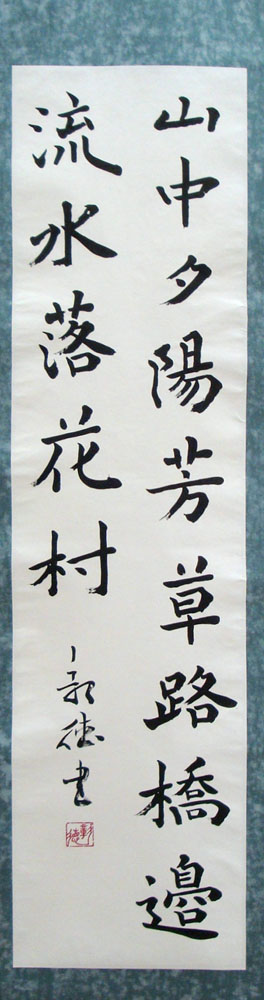 山中夕陽芳草路橋邊
流水落花村
彰德書
彰德